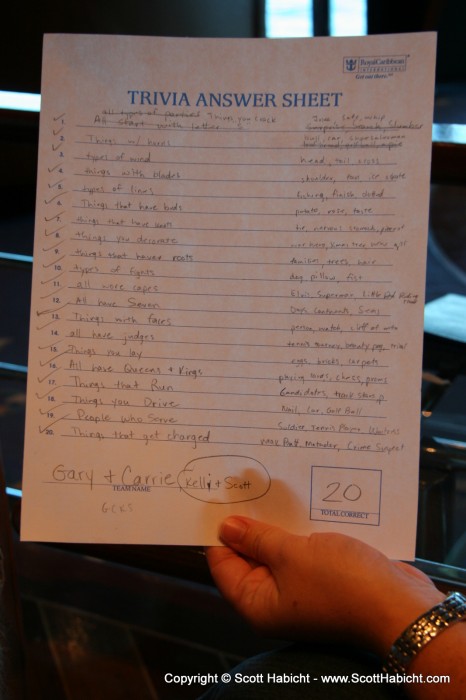 RoyalCaribbean
INTERNATIONAL
Get out there.
TRIVIA ANSWER SHEET
all types of Things you
1. All start with letter S
2. Things w/ heels
3. types of wind head, tail, cross
4. things with blades shoulder, ice skate
5. types of lines fishing, finish, dotted
6. Things that have buds potato, rose, taste
7. things that have
8. things you decorate
9. things that have roots families, trees, hair
10. types of fights dog, pillow, fist
11. all wore capes Elvis, Superman, Little Red Riding Hood
12. All have Seven Days, Continents, Seas
13. Things with faces person, watch, cliff of mtn
14. all have judges
15. Things you lay eggs, bricks, carpets
16. All have Queens + Kings playing cards, chess,
17. Things that Run Candidates,
18. Things you Drive Nail, Car, Golf Ball
19. People who Serve Soldier, Tennis Player, Waitress
20. Things that get charged Battery, Matador, Crime Suspect
Gary + Carrie, Kelly + Scott
TEAM NAME
GCKS
20
TOTAL CORRECT
Copyright © Scott Habicht - www.ScottHabicht.com